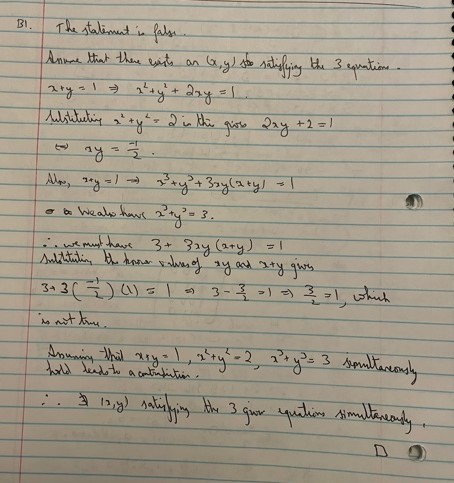 B1. The statement is false.
Assume that there exists an (x,y) satisfying the 3 equations.
x+y = 1 ⇒ x²+y² + 2xy = 1
Substituting x²+y² = 2 in this gives 2xy + 2 = 1
⇔ xy = -1/2.
Also, x+y = 1 ⇒ x³+y³+3xy(x+y) = 1
We also have x³+y³ = 3.
∴ we must have 3 + 3xy (x+y) = 1
Substituting the known values of xy and x+y gives
3+3(-1/2)(1) = 1 ⇒ 3 - 3/2 = 1 ⇒ 3/2 = 1, which
is not true.
Assuming that x+y = 1, x²+y² = 2, x³+y³ = 3 simultaneously
hold leads to a contradiction.
∴ ∄ (x,y) satisfying the 3 given equations simultaneously.
□